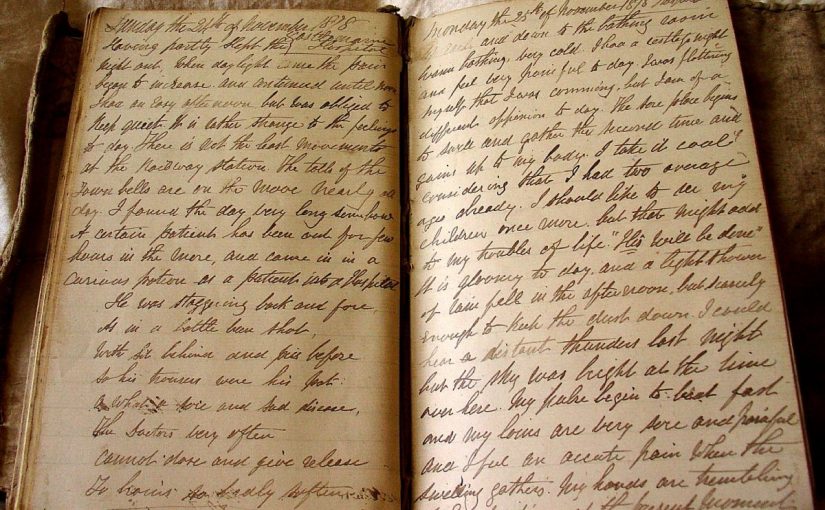 Sunday the 24th of November 1878
Castlemaine Hospital
Having partly slept the
night out, When daylight came the pain
began to increase and continued until noon
I has an easy afternoon but was obliged to
Keep quiet. It is rather strange to the feelings
to day. There is not the least movements
at the Railway station. The tolls of the
Town bells are on the move nearly all
day. I found the day very long somehow
A certain patient has been out for few
hours in the more, and came in in a
curious potion as a patient into a Hospital
He was staggering back and fore,
As in a bottle been shot,
With behind and before
So his trousers were his pot
a What a sore and sad disease,
The Doctors very often
Cannot dose and give release
To brains so sadly soften
Monday the 25th of November 1878
and down to the bathing room
warm bathing. very cold. I had a restless night
and feel very painful to day. I was flattering
myself that I was comming, but I am of a
different oppinion to day. The sore place begins
to swell and gather the second time and
gams up to my body. I take it cool
considering that I had two average
ages already. I should like to see my
children once more. but that might add
to my troubles of life. "His will be done"
It is gloomy to day, and a light shower
of rain fell in the afternoon, but scarcely
enough to Keep the dust down. I could
hear a distant thunders last night
but the sky was bright at the time
over here. My pulse begin to beat fast
and my loins are very sore and painful
and I feel an accute pain When the
swelling gathers. My hands are trembling
present moment